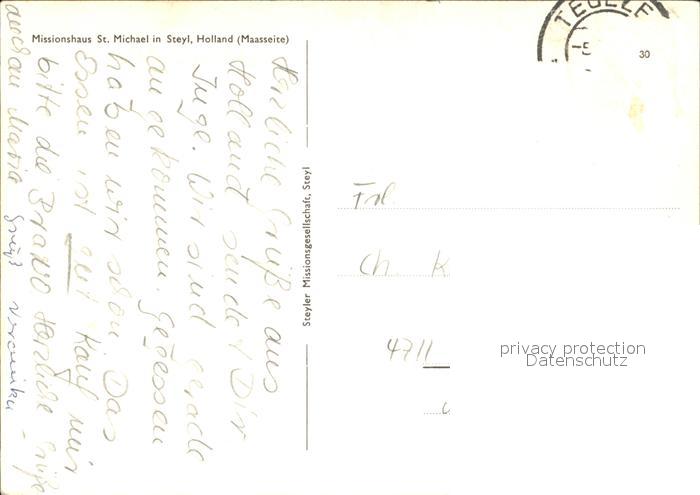 Missionshaus St. Michael in Steyl, Holland (Maasseite)
Herzliche Grüße aus
Holland sendet Dir
Inge. Wir sind gerade
angekommen. Gegessen
haben wir schon Das
Essen ist gut Kauf mir
bitte die Bravo Herzliche Grüße
auch an Maria
Gruß Veronika
Steyler Missionsgesellschaft, Steyl
TEGELE
-5
30
Frl.
Ch. K
4711
privacy protection
Datenschutz